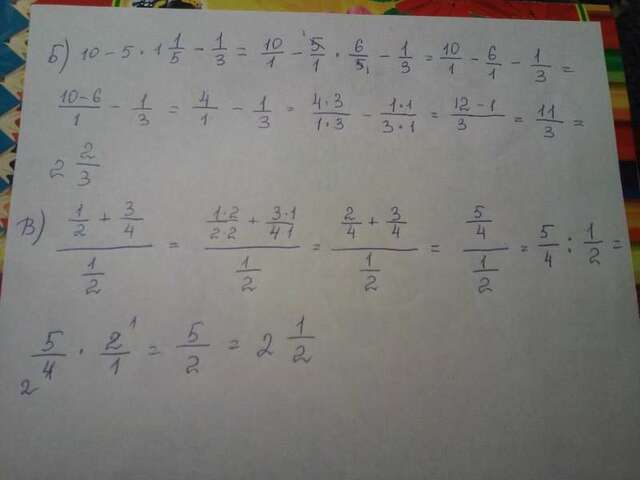 Б) 10 - 5 · 1 1/5 - 1/3 = 10/1 - 5/1 · 6/5 - 1/3 = 10/1 - 6/1 - 1/3 =
(10-6)/1 - 1/3 = 4/1 - 1/3 = (4·3)/(1·3) - (1·1)/(3·1) = (12-1)/3 = 11/3 =
2 2/3
В) (1/2 + 3/4)/(1/2) = ((1·2)/(2·2) + (3·1)/(4·1))/(1/2) = (2/4 + 3/4)/(1/2) = (5/4)/(1/2) = 5/4 : 1/2 =
5/4 · 2/1 = 5/2 = 2 1/2